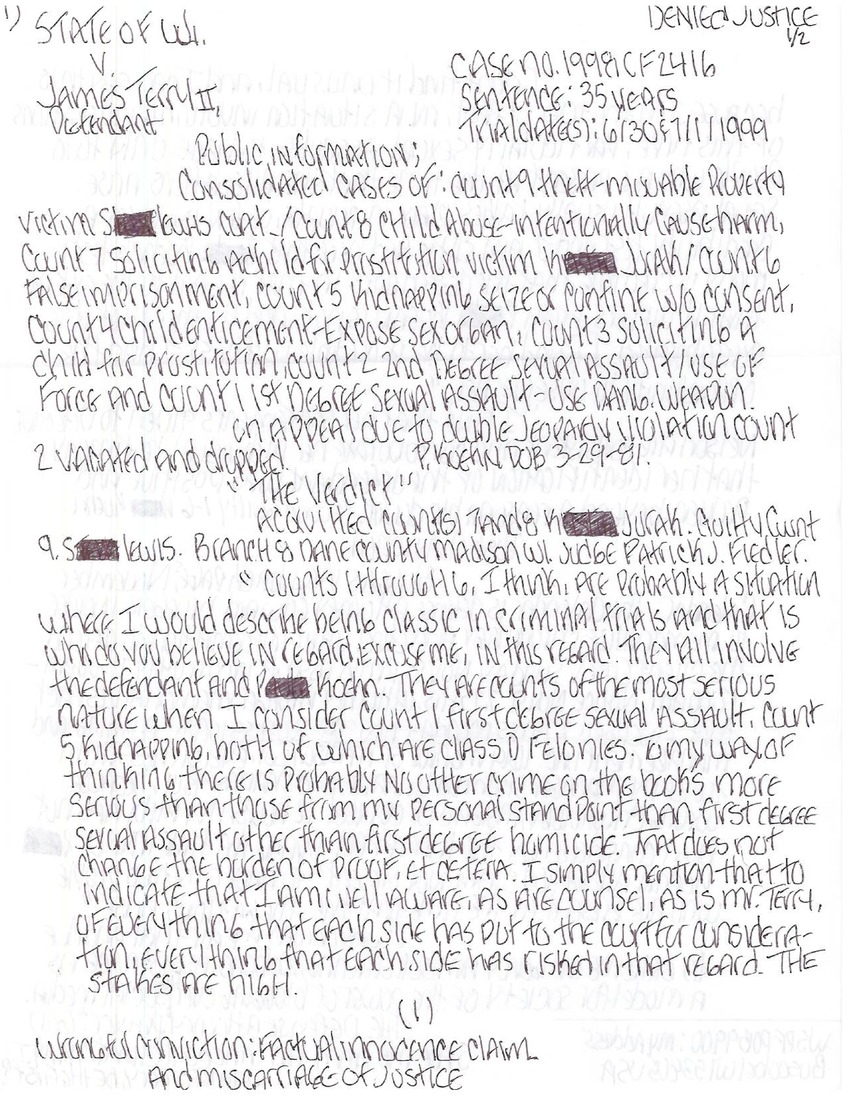 1) STATE OF WI. DENIED JUSTICE
1/2
V. CASE NO. 1998 CF2416
JAMES TERRY II, SENTENCE: 35 YEARS
Defendant TRIAL DATE(S): 6/30 & 7/1/1999
PUBLIC INFORMATION;
CONSOLIDATED CASES OF: COUNT 9 THEFT-MOVABLE PROPERTY
VICTIM S lewis CONT. / COUNT 8 CHILD ABUSE-INTENTIONALLY CAUSE HARM,
COUNT 7 SOLICITING A CHILD for Prostitution victim K JURAK / COUNT 6
FALSE IMPRISONMENT, COUNT 5 KIDNAPPING, SEIZE OR CONFINE W/O CONSENT,
COUNT 4 CHILD ENTICEMENT-EXPOSE SEX ORGAN, COUNT 3 SOLICITING A
CHILD for PROSTITUTION, COUNT 2 2ND DEGREE SEXUAL ASSAULT/USE OF
FORCE AND COUNT 1 1ST DEGREE SEXUAL ASSAULT-USE DANG. WEAPON.
ON APPEAL DUE TO DOUBLE JEOPARDY VIOLATION COUNT
2 VACATED AND dropped. P. KOEHN DOB 3-29-81.
"THE VERDICT"
ACQUITTED COUNTS, 7 AND 8 K JURAK. GUILTY COUNT
9. S lewis. BRANCH 8 DANE COUNTY MADISON WI. JUDGE PATRICK J. FIEDLER.
" COUNTS 1 THROUGH 6, I THINK, ARE PROBABLY A SITUATION
WHERE I WOULD DESCRIBE BEING CLASSIC IN CRIMINAL TRIALS AND THAT IS
WHO DO YOU BELIEVE IN REGARD, EXCUSE ME, IN THIS REGARD. THEY ALL INVOLVE
THE DEFENDANT AND P Koehn. THEY ARE COUNTS OF THE MOST SERIOUS
NATURE WHEN I CONSIDER COUNT 1 FIRST DEGREE SEXUAL ASSAULT, COUNT
5 KIDNAPPING, BOTH OF WHICH ARE CLASS D FELONIES. TO MY WAY OF
THINKING THERE IS PROBABLY NO OTHER CRIME ON THE BOOKS MORE
SERIOUS THAN THOSE FROM MY PERSONAL STAND POINT THAN FIRST DEGREE
SEXUAL ASSAULT OTHER THAN FIRST DEGREE HOMICIDE. THAT DOES NOT
CHANGE THE BURDEN OF PROOF, ET CETERA. I SIMPLY MENTION THAT TO
INDICATE THAT I AM WELL AWARE, AS ARE COUNSEL, AS IS MR. TERRY,
OF EVERYTHING THAT EACH SIDE HAS PUT TO THE COURT FOR CONSIDERA-
TION, EVERYTHING THAT EACH SIDE HAS RISKED IN THAT REGARD. THE
STAKES ARE HIGH.
(1)
WRONGFUL CONVICTION: FACTUAL INNOCENCE CLAIM
AND MISCARRIAGE OF JUSTICE